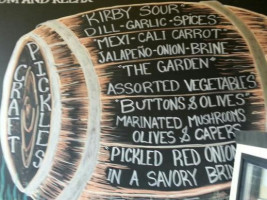 CRAFT
PICKLES
"KIRBY SOUR"
DILL-GARLIC-SPICES
"MEXI-CALI CARROT"
JALAPEÑO-ONION-BRINE
"THE GARDEN"
ASSORTED VEGETABLES
"BUTTONS & OLIVES"
MARINATED MUSHROOMS
OLIVES & CAPERS
PICKLED RED ONION
IN A SAVORY BRIN